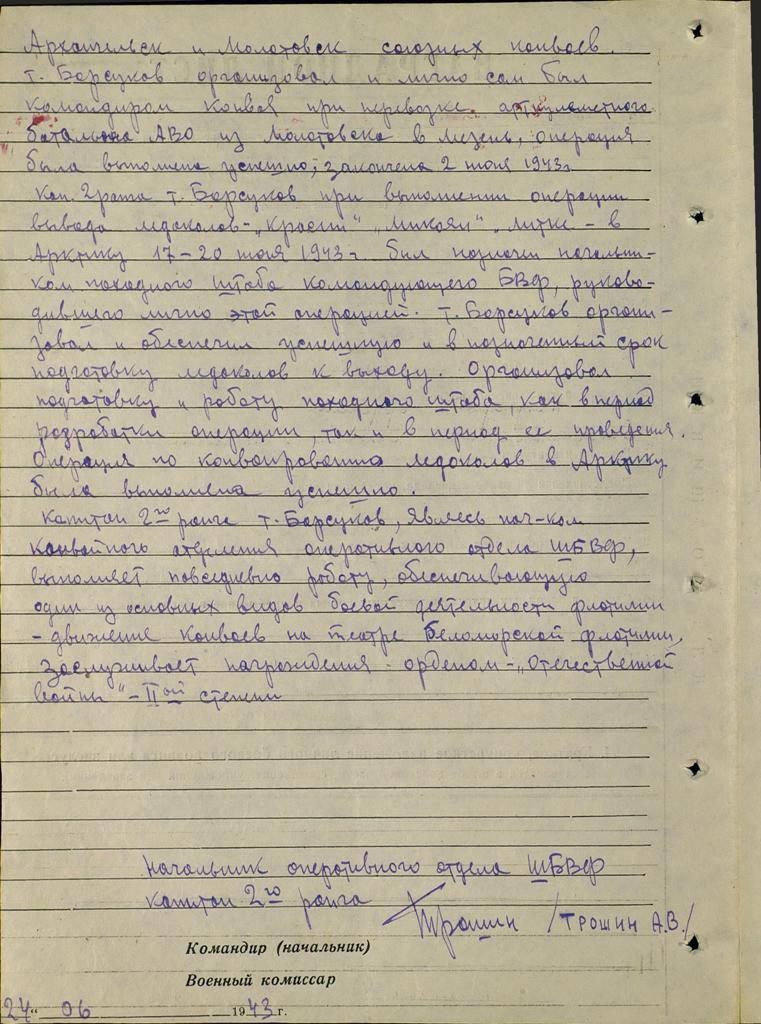 Архангельск и Молотовск союзных конвоев.
т. Борсуков организовал и лично сам был
командиром конвоя при перевозке артпулеметного
батальона АВО из Молотовска в Мезень, операция
была выполнена успешно, закончена 2 июня 1943г.
Кап. 2ранга т. Борсуков при выполнении операции
вывода ледоколов - „Красин" „Микоян" „Литке - в
Арктику 17-20 июня 1943г. был назначен начальни-
ком походного штаба командующего БВФ, руково-
дившего лично этой операцией. т. Борсуков органи-
зовал и обеспечил успешную и в назначенный срок
подготовку ледоколов к выходу. Организовал
подготовку и работу походного штаба, как в период
разработки операции, так и в период ее проведения.
Операция по конвоированию ледоколов в Арктику
была выполнена успешно.
Капитан 2го ранга т. Борсуков, являясь нач-ком
конвойного отделения оперативного отдела ШБВФ,
выполняет повседневно работу, обеспечивающую
один из основных видов боевой деятельности флотилии
- движение конвоев на театре Беломорской флотилии,
заслуживает награждения - орденом - „Отечественной
войны" - IIой степени
Начальник оперативного отдела ШБВФ
капитан 2го ранга
Трошин /ТРОШИН А.В./
Командир (начальник)
Военный комиссар
24" 06 1943 г.